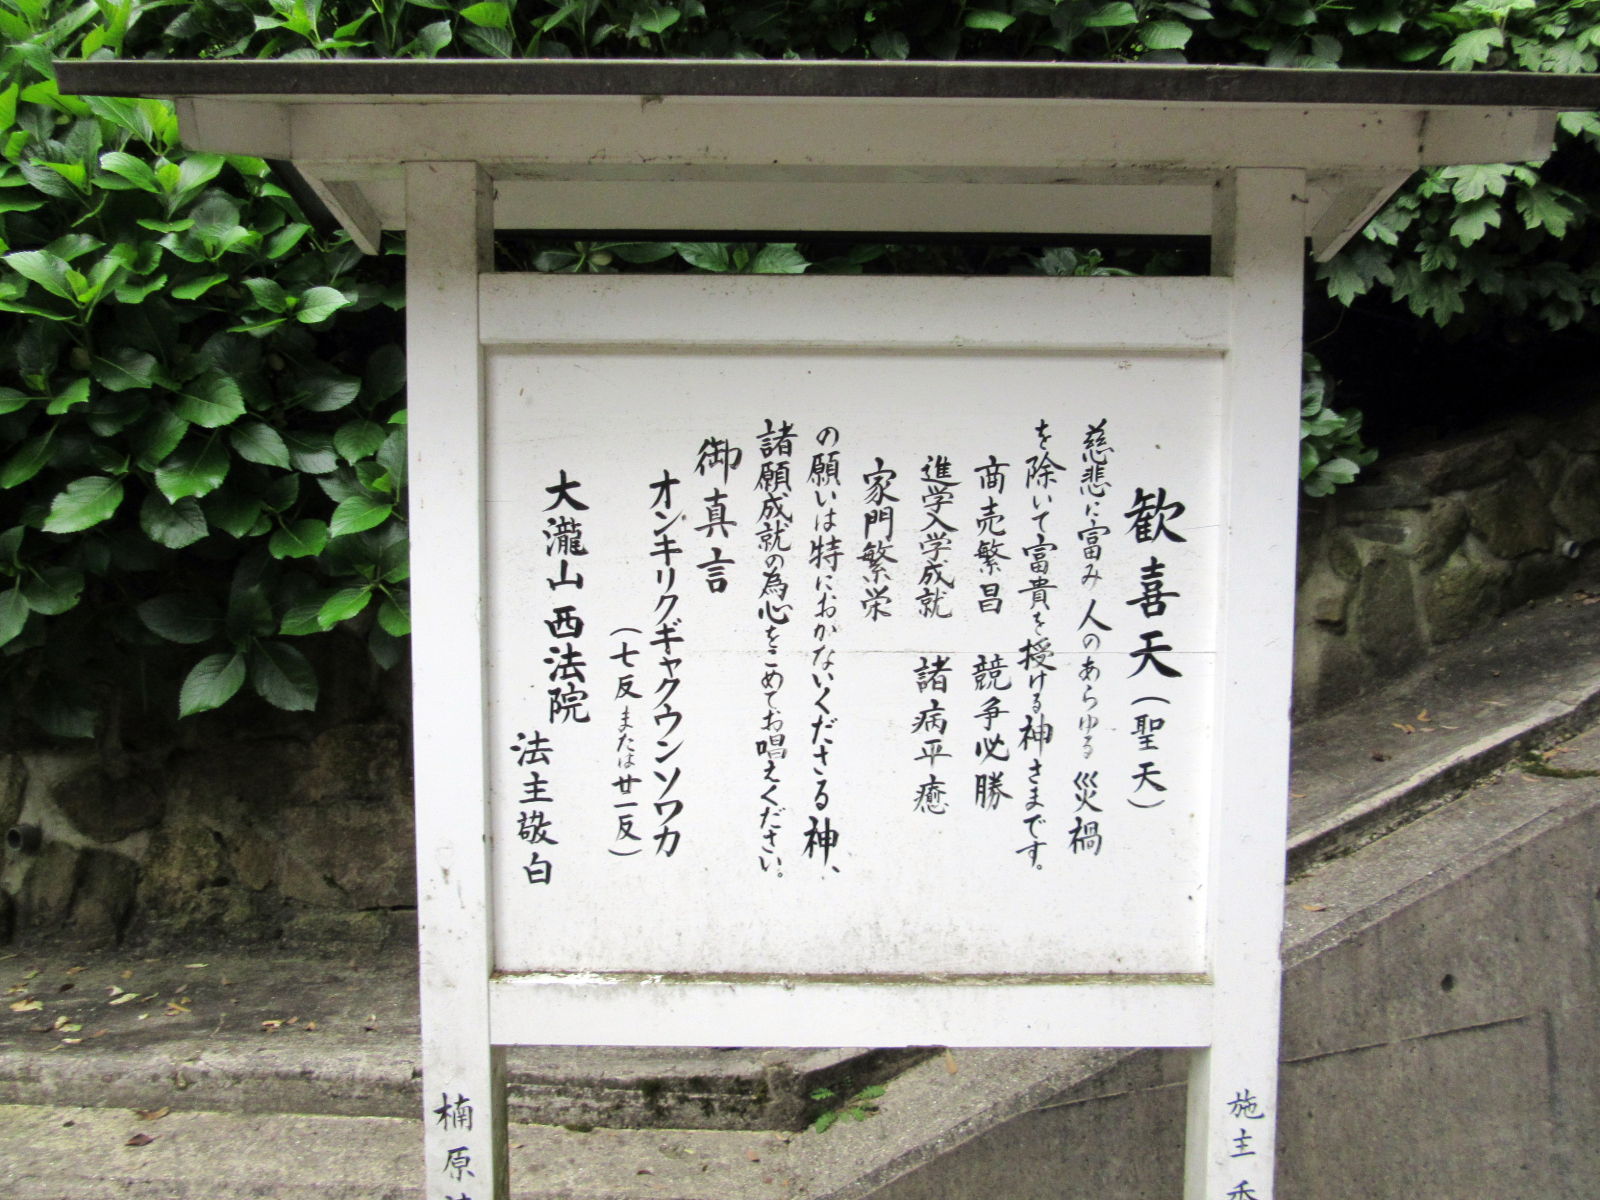 歓喜天(聖天)
慈悲に富み人のあらゆる災禍
を除いて富貴を授ける神さまです。
商売繁昌 競争必勝
進学入学成就 諸病平癒
家門繁栄
の願いは特におかないくださる神、
諸願成就の為心をこめてお唱えください。
御真言
オンキリクギャクウンソワカ
(七反または廿一反)
大瀧山 西法院
法主敬白
施主
楠原